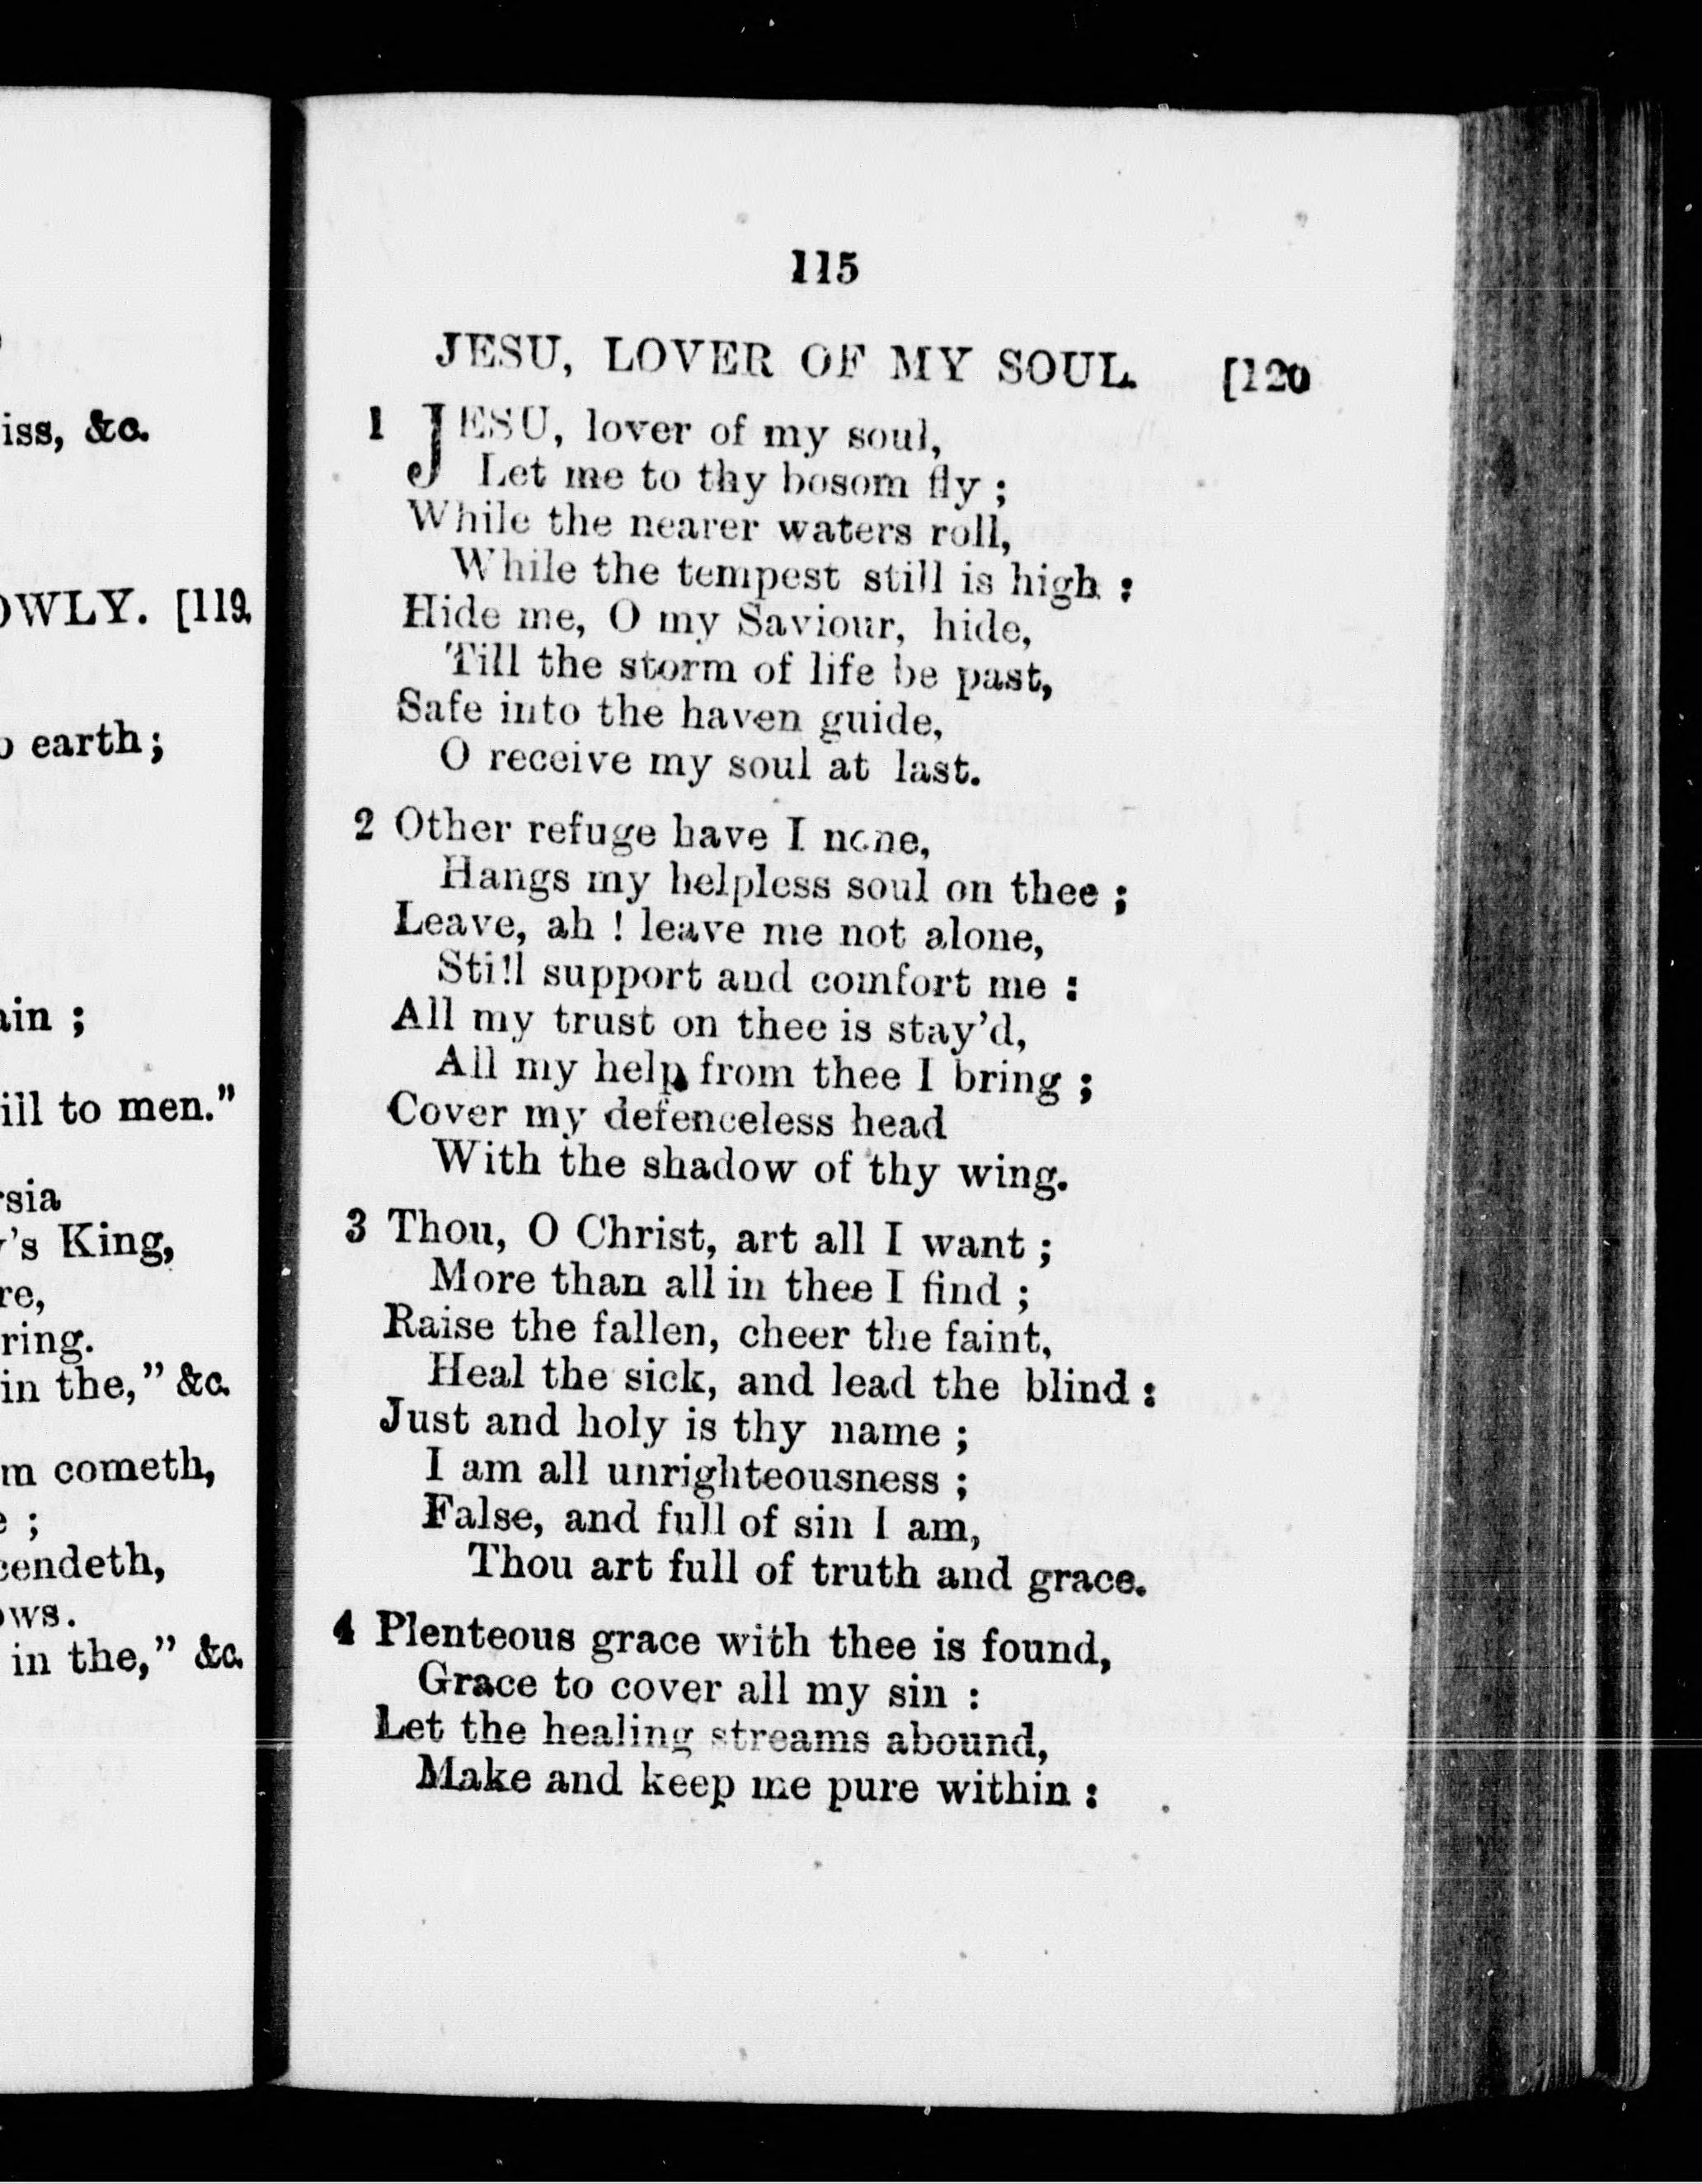 iss, &c.
OWLY. [119.
earth;
ain ;
ill to men."
rsia
's King,
re,
ring.
in the," &c.
m cometh,
e ;
cendeth,
ows.
in the," &c.
115
JESU, LOVER OF MY SOUL. [120
1 JESU, lover of my soul,
Let me to thy bosom fly ;
While the nearer waters roll,
While the tempest still is high :
Hide me, O my Saviour, hide,
Till the storm of life be past,
Safe into the haven guide,
O receive my soul at last.
2 Other refuge have I none,
Hangs my helpless soul on thee ;
Leave, ah ! leave me not alone,
Still support and comfort me :
All my trust on thee is stay'd,
All my help from thee I bring ;
Cover my defenceless head
With the shadow of thy wing.
3 Thou, O Christ, art all I want ;
More than all in thee I find ;
Raise the fallen, cheer the faint,
Heal the sick, and lead the blind :
Just and holy is thy name ;
I am all unrighteousness ;
False, and full of sin I am,
Thou art full of truth and grace.
4 Plenteous grace with thee is found,
Grace to cover all my sin :
Let the healing streams abound,
Make and keep me pure within :